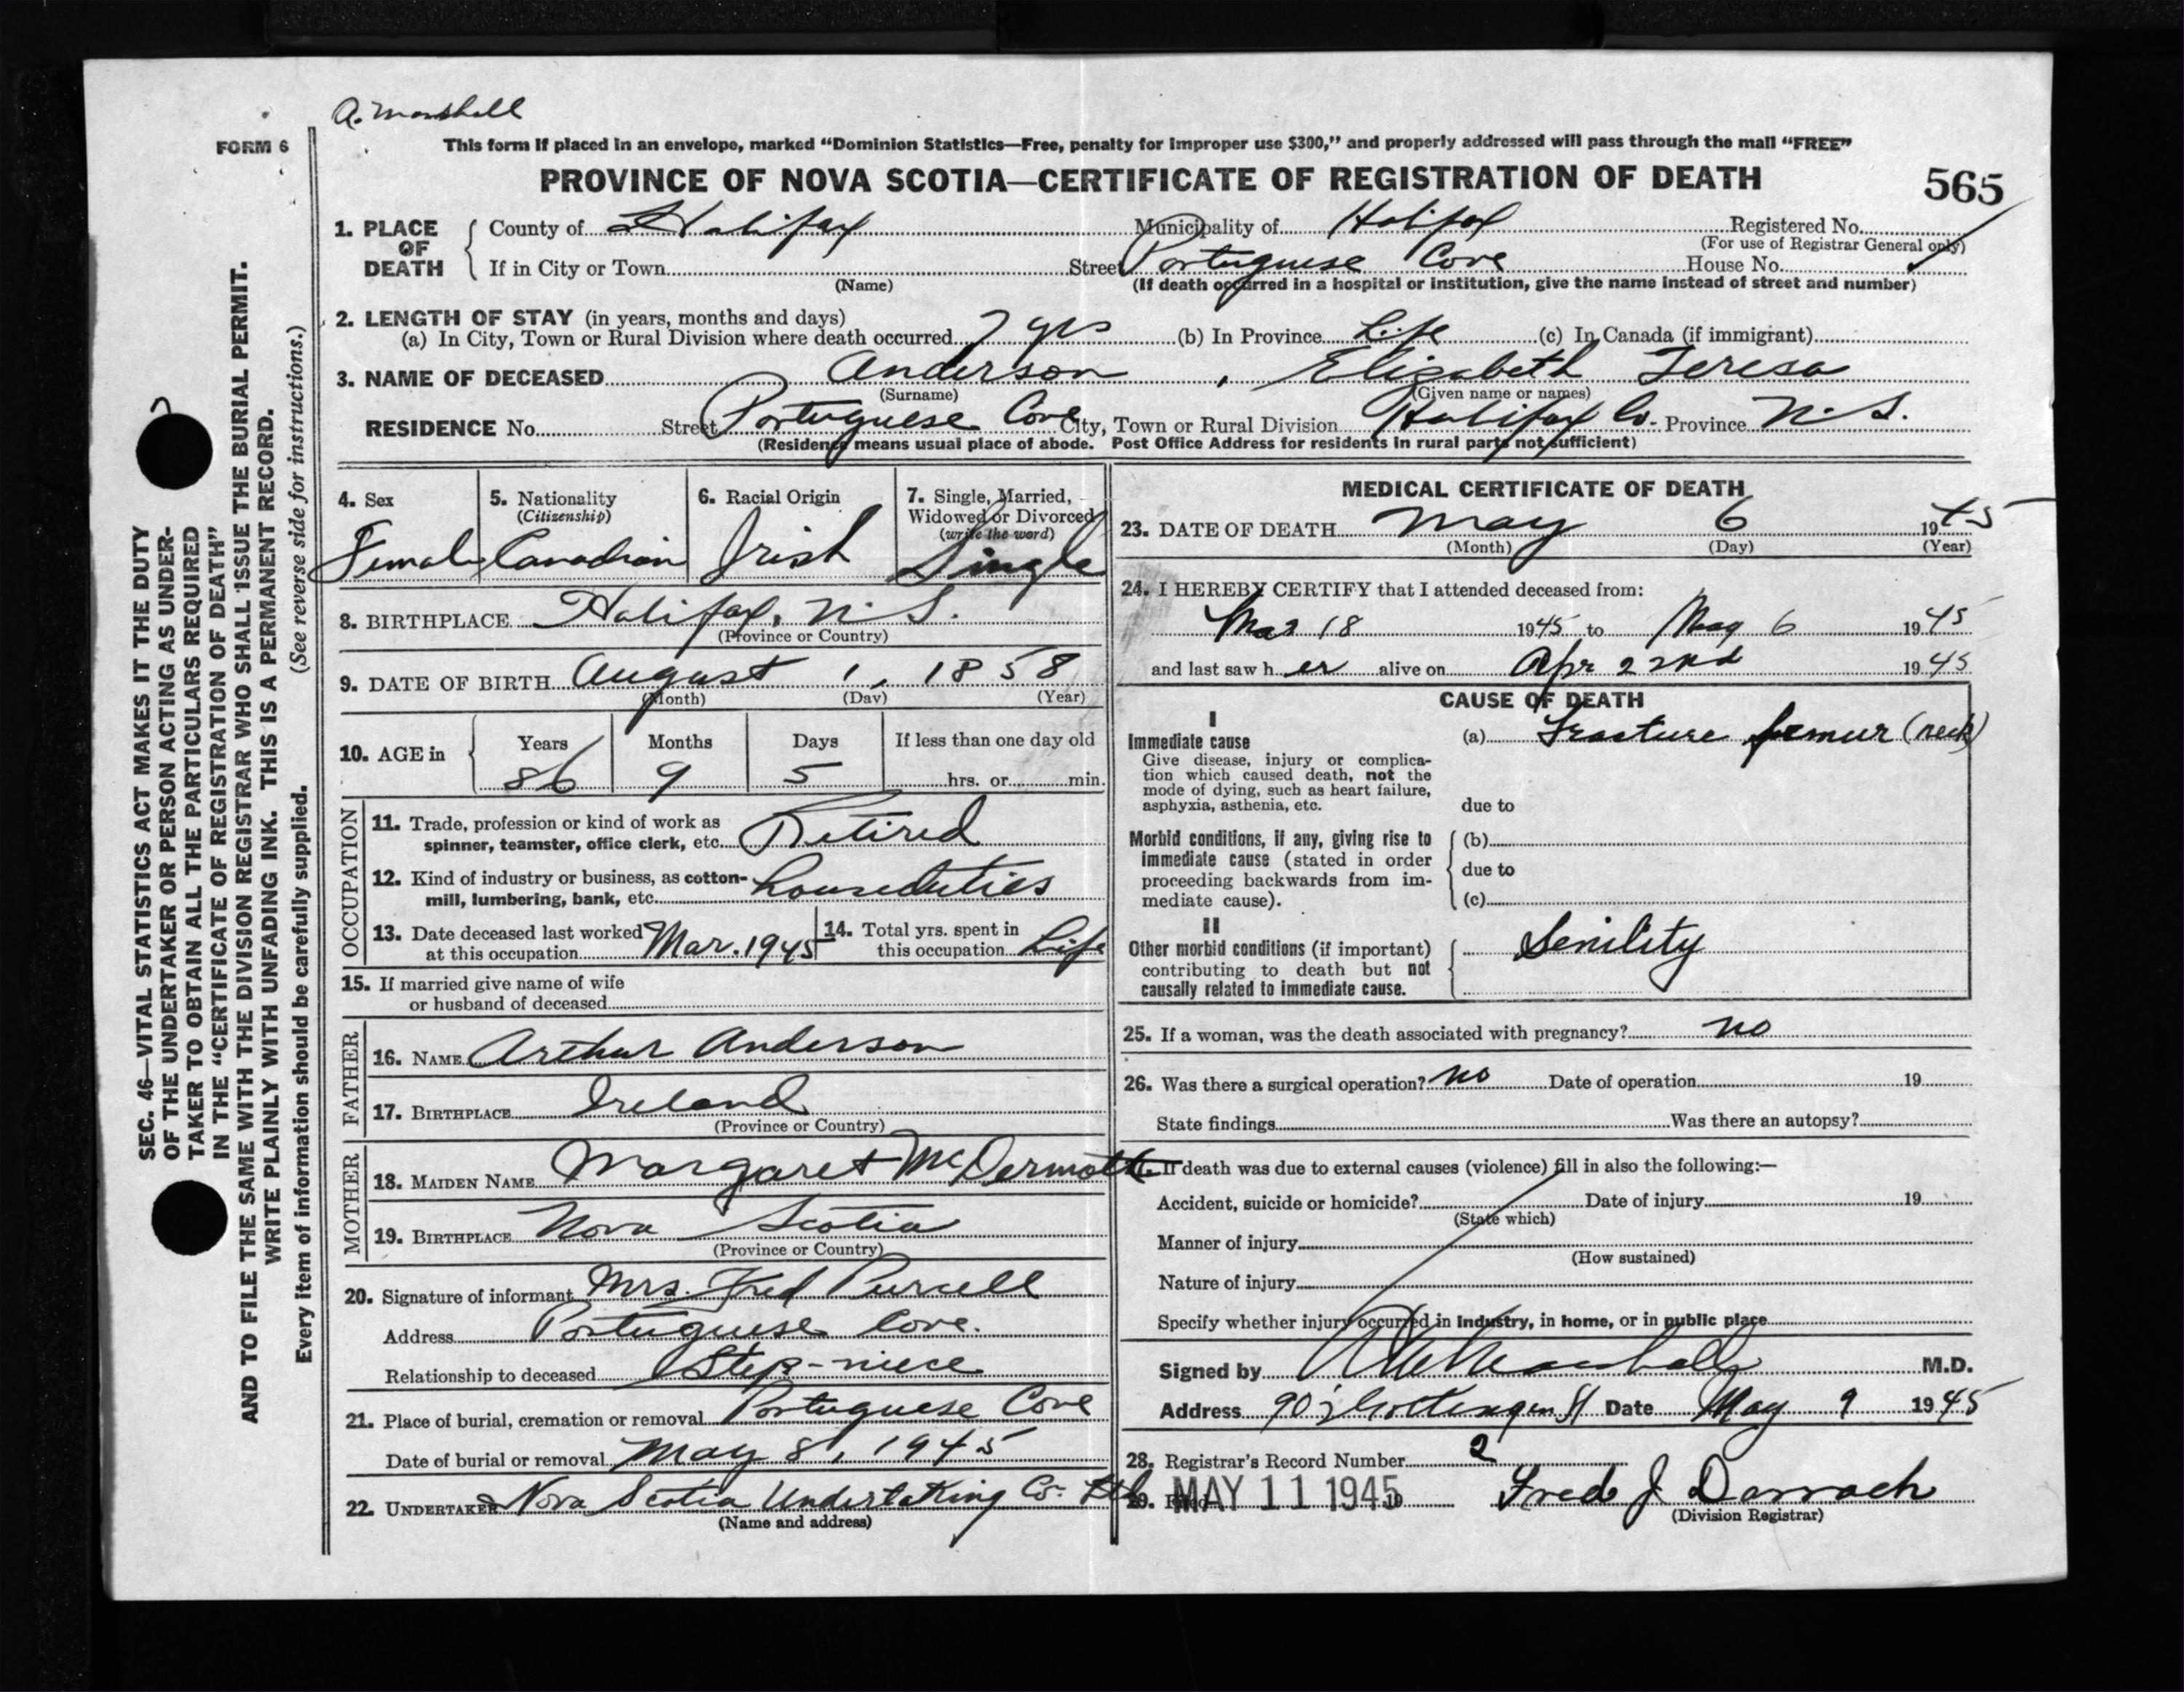 A. Marshall
FORM 6
This form if placed in an envelope, marked "Dominion Statistics—Free, penalty for improper use $300," and properly addressed will pass through the mail "FREE"
PROVINCE OF NOVA SCOTIA—CERTIFICATE OF REGISTRATION OF DEATH
565
1. PLACE OF DEATH
County of Halifax Municipality of Halifax Registered No.
(For use of Registrar General only)
If in City or Town Street Portuguese Cove House No.
(Name) (If death occurred in a hospital or institution, give the name instead of street and number)
2. LENGTH OF STAY (in years, months and days)
(a) In City, Town or Rural Division where death occurred 7 yrs (b) In Province Life (c) In Canada (if immigrant)
3. NAME OF DECEASED Anderson, Elizabeth Teresa
(Surname) (Given name or names)
RESIDENCE No. Street Portuguese Cove City, Town or Rural Division Halifax Co. Province N.S.
(Residence means usual place of abode. Post Office Address for residents in rural parts not sufficient)
4. Sex
Female
5. Nationality
(Citizenship)
Canadian
6. Racial Origin
Irish
7. Single, Married,
Widowed or Divorced
(write the word)
Single
8. BIRTHPLACE Halifax, N.S.
(Province or Country)
9. DATE OF BIRTH August 1, 1858
(Month) (Day) (Year)
10. AGE in
Years Months Days If less than one day old
86 9 5 hrs. or min.
OCCUPATION
11. Trade, profession or kind of work as
spinner, teamster, office clerk, etc. Retired
12. Kind of industry or business, as cotton-
mill, lumbering, bank, etc. houseduties
13. Date deceased last worked
at this occupation Mar. 1945
14. Total yrs. spent in
this occupation Life
15. If married give name of wife
or husband of deceased
FATHER
16. NAME Arthur Anderson
17. BIRTHPLACE Ireland
(Province or Country)
MOTHER
18. MAIDEN NAME Margaret McDermott
19. BIRTHPLACE Nova Scotia
(Province or Country)
20. Signature of informant Mrs. Fred Purcell
Address Portuguese Cove.
Relationship to deceased Step-niece
21. Place of burial, cremation or removal Portuguese Cove
Date of burial or removal May 8, 1945
22. UNDERTAKER Nova Scotia Undertaking Co. Ltd
(Name and address)
MEDICAL CERTIFICATE OF DEATH
23. DATE OF DEATH May 6 1945
(Month) (Day) (Year)
24. I HEREBY CERTIFY that I attended deceased from:
Mar 18 1945 to May 6 1945
and last saw her alive on Apr 22nd 1945
CAUSE OF DEATH
I
Immediate cause
Give disease, injury or complica-
tion which caused death, not the
mode of dying, such as heart failure,
asphyxia, asthenia, etc.
(a) Fracture femur (neck)
due to
Morbid conditions, if any, giving rise to
immediate cause (stated in order
proceeding backwards from im-
mediate cause).
(b)
due to
(c)
II
Other morbid conditions (if important)
contributing to death but not
causally related to immediate cause.
Senility
25. If a woman, was the death associated with pregnancy? no
26. Was there a surgical operation? no Date of operation 19
State findings Was there an autopsy?
If death was due to external causes (violence) fill in also the following:—
Accident, suicide or homicide? Date of injury 19
(State which)
Manner of injury
(How sustained)
Nature of injury
Specify whether injury occurred in Industry, in home, or in public place
Signed by Marshall M.D.
Address Gottingen St Date May 9 1945
28. Registrar's Record Number 2
29. MAY 11 1945 19 Fred J Darrach
(Division Registrar)
SEC. 46—VITAL STATISTICS ACT MAKES IT THE DUTY
OF THE UNDERTAKER OR PERSON ACTING AS UNDER-
TAKER TO OBTAIN ALL THE PARTICULARS REQUIRED
IN THE "CERTIFICATE OF REGISTRATION OF DEATH"
AND TO FILE THE SAME WITH THE DIVISION REGISTRAR WHO SHALL ISSUE THE BURIAL PERMIT.
WRITE PLAINLY WITH UNFADING INK. THIS IS A PERMANENT RECORD.
Every item of information should be carefully supplied. (See reverse side for instructions.)